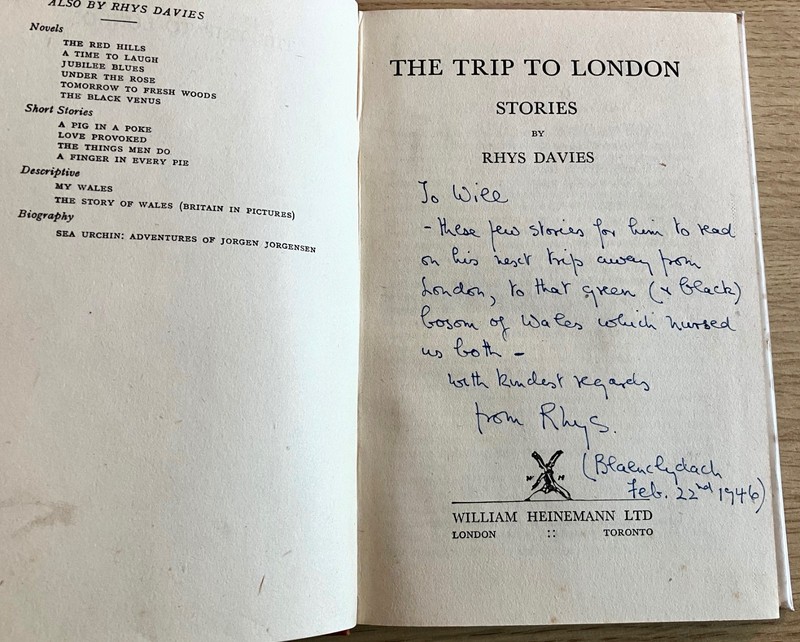 ALSO BY RHYS DAVIES
Novels
THE RED HILLS
A TIME TO LAUGH
JUBILEE BLUES
UNDER THE ROSE
TOMORROW TO FRESH WOODS
THE BLACK VENUS
Short Stories
A PIG IN A POKE
LOVE PROVOKED
THE THINGS MEN DO
A FINGER IN EVERY PIE
Descriptive
MY WALES
THE STORY OF WALES (BRITAIN IN PICTURES)
Biography
SEA URCHIN: ADVENTURES OF JORGEN JORGENSEN
THE TRIP TO LONDON
STORIES
BY
RHYS DAVIES
To Will
- these few stories for him to read
on his next trip away from
London, to that green (& black)
bosom of Wales which nursed
us both -
with kindest regards
from Rhys.
(Blaenclydach
Feb. 22nd 1946)
W H
WILLIAM HEINEMANN LTD
LONDON :: TORONTO